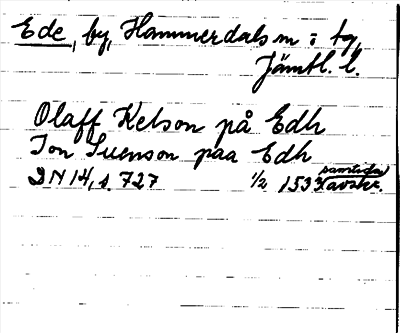 Ede, by, Hammerdals sn o tg,
Jämtl. l.
Olaff Kelson på Edh
Jon Suenson paa Edh
DN 14, s. 727 1/2 1533 samtida avskr.